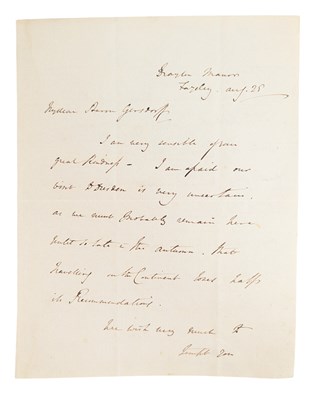 Drayton Manor
Fazeley Aug. 25
My dear Baron Gersdorff,
I am very sensible of your
great kindness – I am afraid our
visit to Dresden is very uncertain
as we must probably remain here
until so late in the autumn, that
travelling on the Continent loses half
its Recommendations.
We wish very much to
you